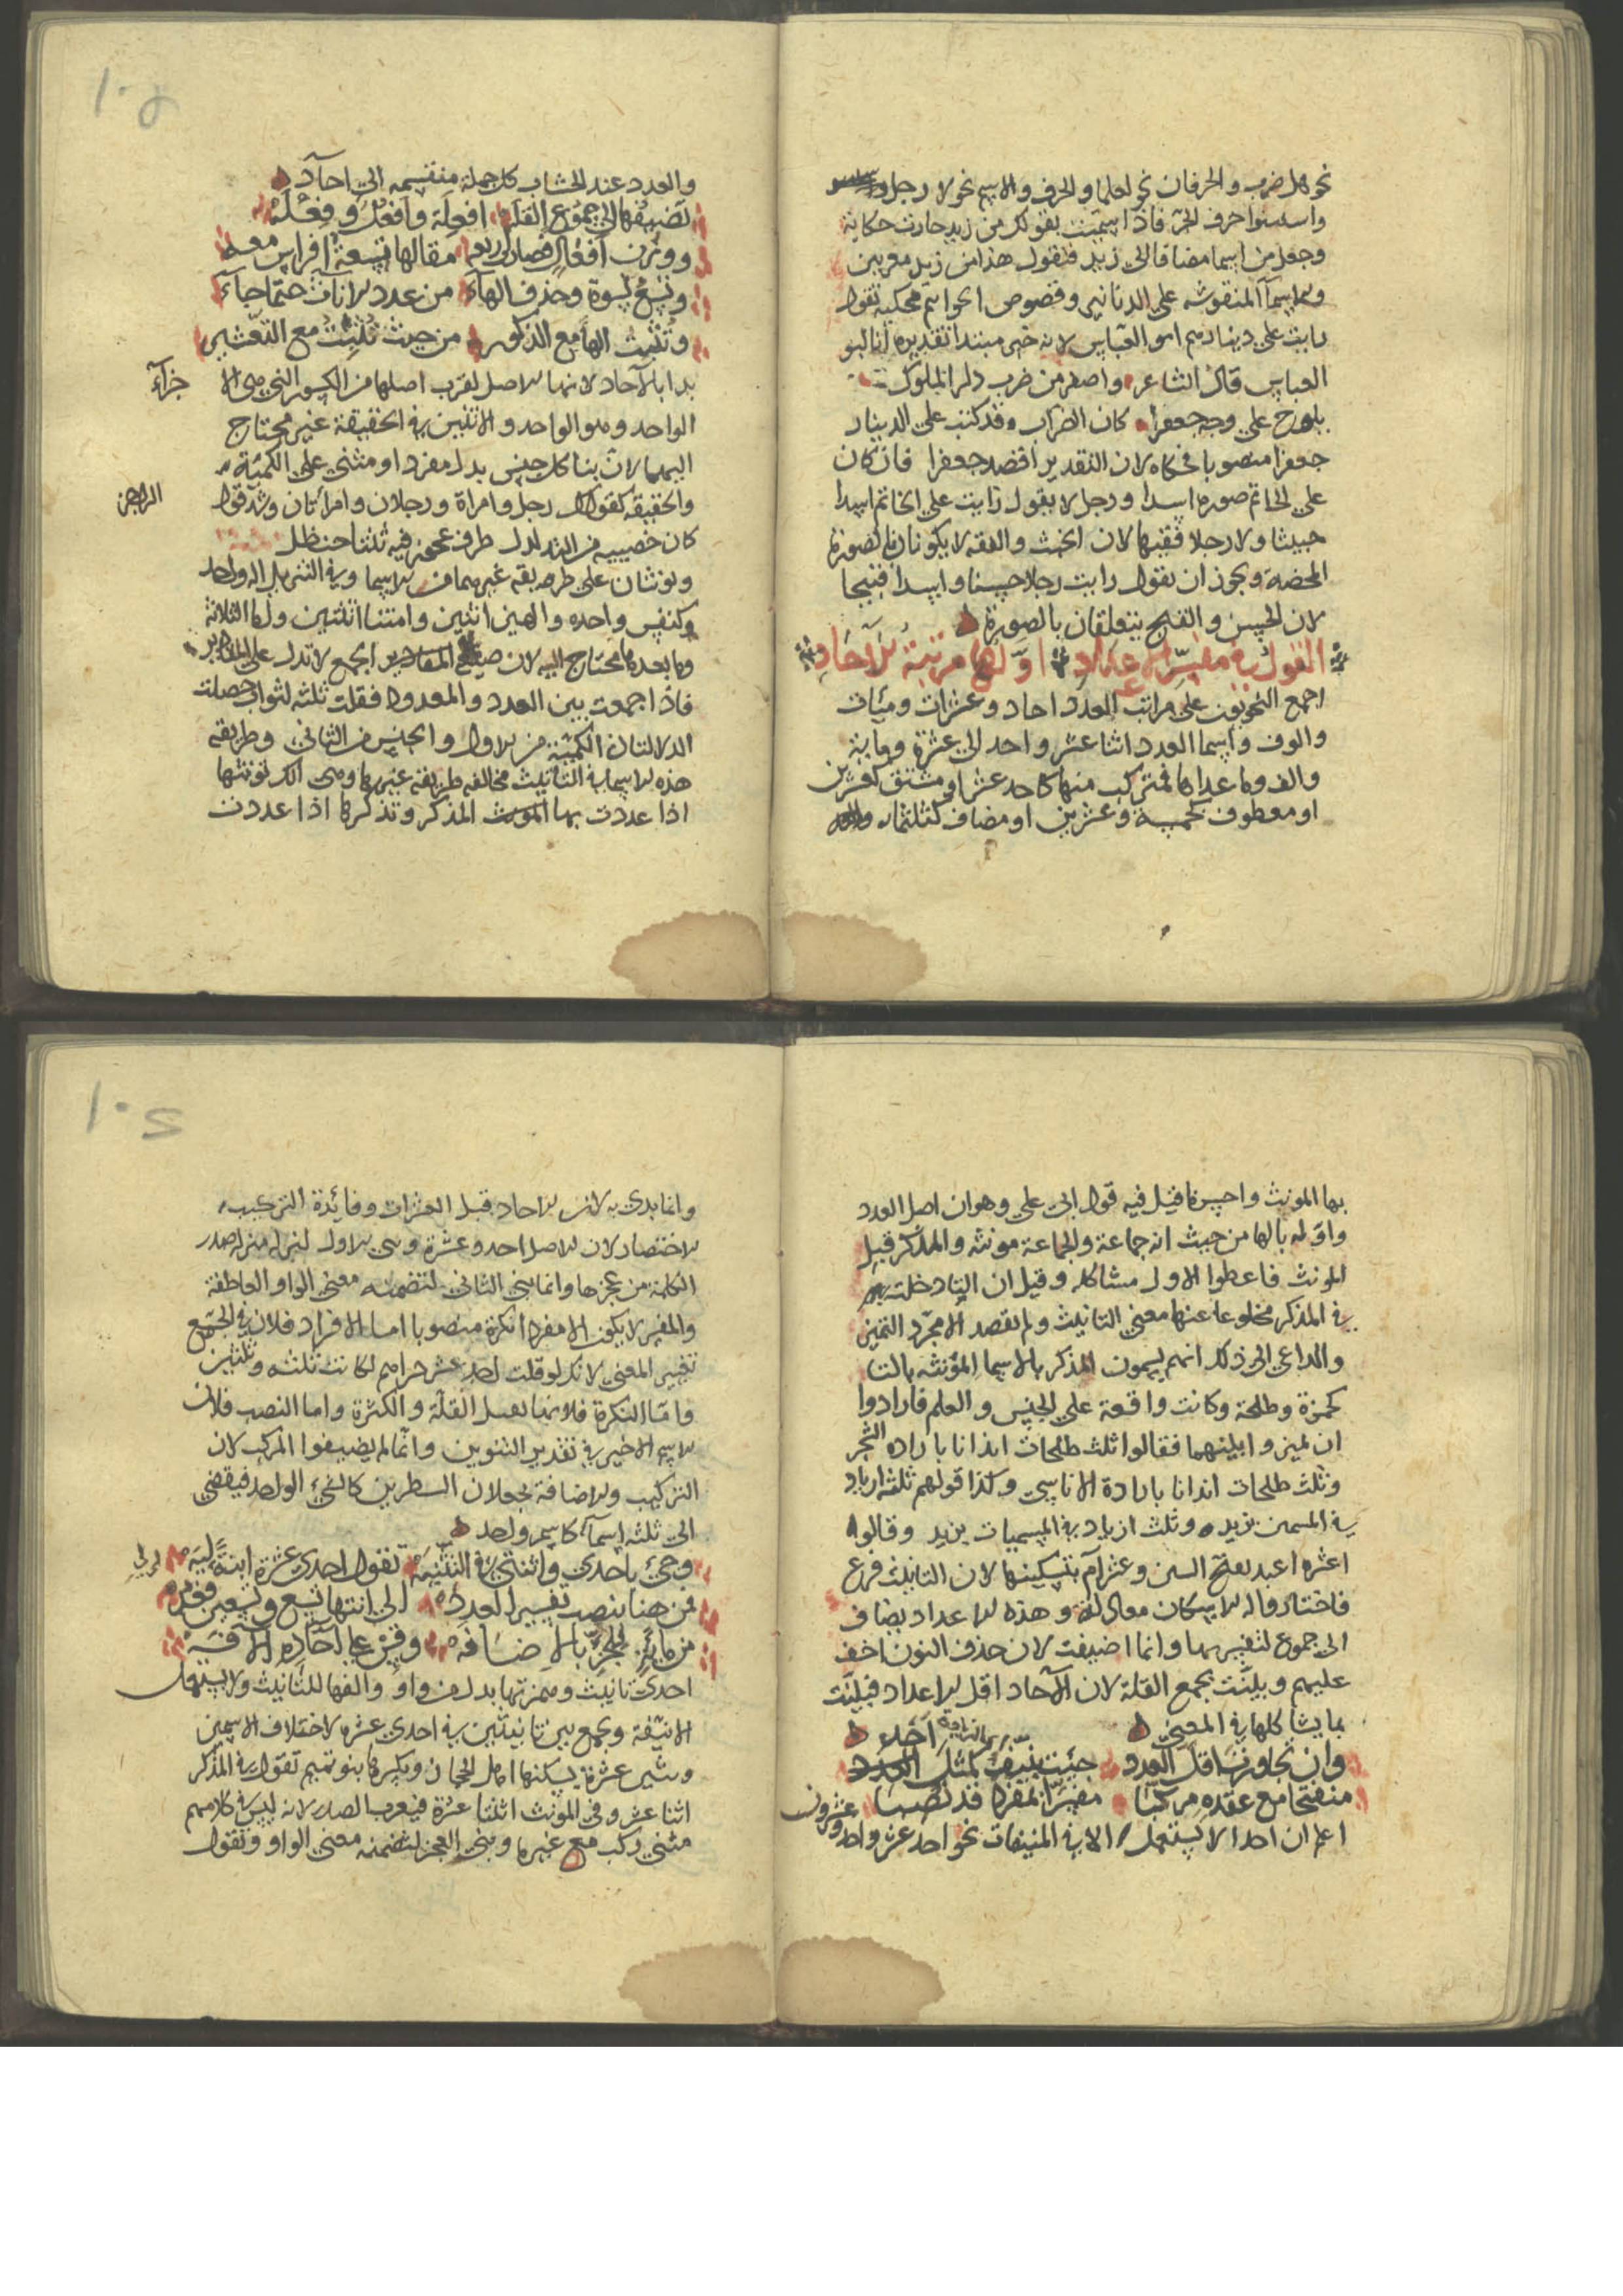 نحو هل ضرب والحرفان نحو لعلما والحرف والاسم نحو لا رجل
واستثنوا حرف الجر فاذا سميت بقولك من زيد جازت حكايته
وجعل من اسما مضافا الى زيد فتقول هذا من زيد معربين
والاسمآ المنقوشه على الدنانير وفصوص الخواتم محكيه تقول
رايت على دينارهم ابو العباس لانه خبر مبتدا تقديره انا ابو
العباس قال الشاعر واصفر من ضرب دار الملوك
يلوح على وجهه جعفرا كان الضراب وقد كتب على الدينار
جعفرا منصوبا فحكاه لان التقدير اقصد جعفرا فان كان
على الخاتم صوره اسد او رجل لا يقول رايت على الخاتم اسدا
خبيثا ولا رجلا فقيها لان الخبث والفقه لا يكونان في الصورة
المحضة ويجوز ان يقول رايت رجلا حسنا واسدا قبيحا
لان الحسن والقبح يتعلقان بالصورة
القول في مفسر الاعداد اولها مرتبة الآحاد
اجمع النحويون على مراتب العدد احاد وعشرات ومئات
والوف واسما العدد اثنا عشر واحد الى عشرة ومايه
والف وما عداها فمتركب منها كاحد عشر او مشتق كعشرين
او معطوف كخمسة وعشرين او مضاف كثلثمائه
١٠٥
والعدد عند الحساب كل جملة منقسمه الى احآد
تضيفها الى جموع القلة افعلة وافعل وفعلة
ووزن افعال فصار اربعا مقالها تسعة افراس معه
وتسع نسوة وحذف الهآء من عدد الاناث حتما جآء
وتثبت الها مع الذكور من حيث ثلثت مع التعشير
بدا بالآحاد لانها الاصل لقرب اصلها من الكسور التي هي الا
جزآء
الواحد وهو الواحد والاثنين في الحقيقة غير محتاج
اليهما لان بنا كل جنس يدل مفردا ومثنى على الكميّة
والحقيقه كقولك رجل وامراة ورجلان وامرأتان وشذ قول
الراجز
كان خصييه من التدلدل ظرف عجوز فيه ثنتا حنظل
ويونثان على طريقه غيرهما من الاسما وفي التنزيل اله واحد
وكنفس واحده والهين اثنين وامتنا اثنتين واما الثلاثة
وما بعدها فمحتاج اليه لان صيغ الجمع لا تدل على المقادير
فاذا جمعت بين العدد والمعدود فقلت ثلثه اثواب حصلت
الدلالتان الكمية من الاول والجنس من الثاني وطريقة
هذه الاسما في التانيث مخالفه طريقة غيرها وهي انك تونثها
اذا عددت بها المذكر وتذكرها اذا عددت
بها المونث واحسن ما قيل فيه قول ابي علي وهو ان اصل العدد
واوّله بالها من حيث انه جماعة والجماعة مونثه والمذكر قبل
المونث فاعطوا الاول مشاكله وقيل ان التا دخلت
في المذكر مخلوعا عنها معنى التانيث ولم يقصد الا مجرّد التميز
والداعي الى ذلك انهم يسمون المذكر بالاسما المؤنثه بالتا
كحمزة وطلحة وكانت واقعة على الجنس والعلم فارادوا
ان تميز وا بينهما فقالوا ثلث طلحات ايذانا بارادة الشجر
وثلث طلحات ايذانا بارادة الاناسي وكذا قولهم ثلثة ازياد
في المسمين بزيد وثلث ازياد في المسميات بزيد وقالوا
عشره اعبد بفتح الشين وعشر آم بتسكينها لان التانيث فرع
فاختاروا له الاسكان معادلة وهذه الاعداد يضاف
الى جموع لتفسيرها وانما اضيفت لان حذف النون اخف
عليهم وبينت بجمع القلة لان الآحاد اقل الاعداد فبينت
بما يشاكلها في المعنى
وان تجاوزت اقل العدد جئت بنيف كمثل احد
منفتحا مع عقده مركبا مفسرا بمفرد قد نصبا
اعلم ان احدا لا يستعمل الا في المنيفات نحو احد عشر واحد
وعشرون
١٠٦
وانما بدي به لان الاحاد قبل العشرات وفائدة التركيب
الاختصار لان الاصل احد وعشرة وبني الاول لتنزله منزلة صدر
الكلمة من عجزها وانما بني الثاني لتضمنه معنى الواو العاطفة
والمفسر لا يكون الا مفردا نكرة منصوبا اما الافراد فلان في الجمع
تغيير المعنى لانك لو قلت احد عشر دراهم لكانت ثلثه وثلثين
وامّا النكرة فلانها تقبل القلّة والكثرة واما النصب فلان
الاسم الاخير في تقدير التنوين وانّما لم يضيفوا المركب لان
التركيب والاضافة يجعلان الشطرين كالشيء الواحد فيفضي
الى ثلثه اسمآء كاسم واحد
وجئ باحدي واثنتي في التثنيه تقول احدي عشرة ابنة ليه
فمن هنا ينصب تفسير العدد الى انتها تسع وتسعين فقد
من مايةٍ يجر بالاضافه وقس على آحاده الآفه
احدى تانيث وهمزتها بدل من واو والفها للتانيث ولا يستعمل
الا نيّفة وجمع بين تانيثين في احدى عشره لاختلاف الاسمين
وشين عشرة يسكنها اهل الحجاز ويكسرها بنو تميم تقول في المذكر
اثنا عشر وفي المونث اثنتا عشرة فيعرب الصدر لانه ليس في كلامهم
مثنى ركب مع غيره وبني العجز لتضمنه معنى الواو وتقول